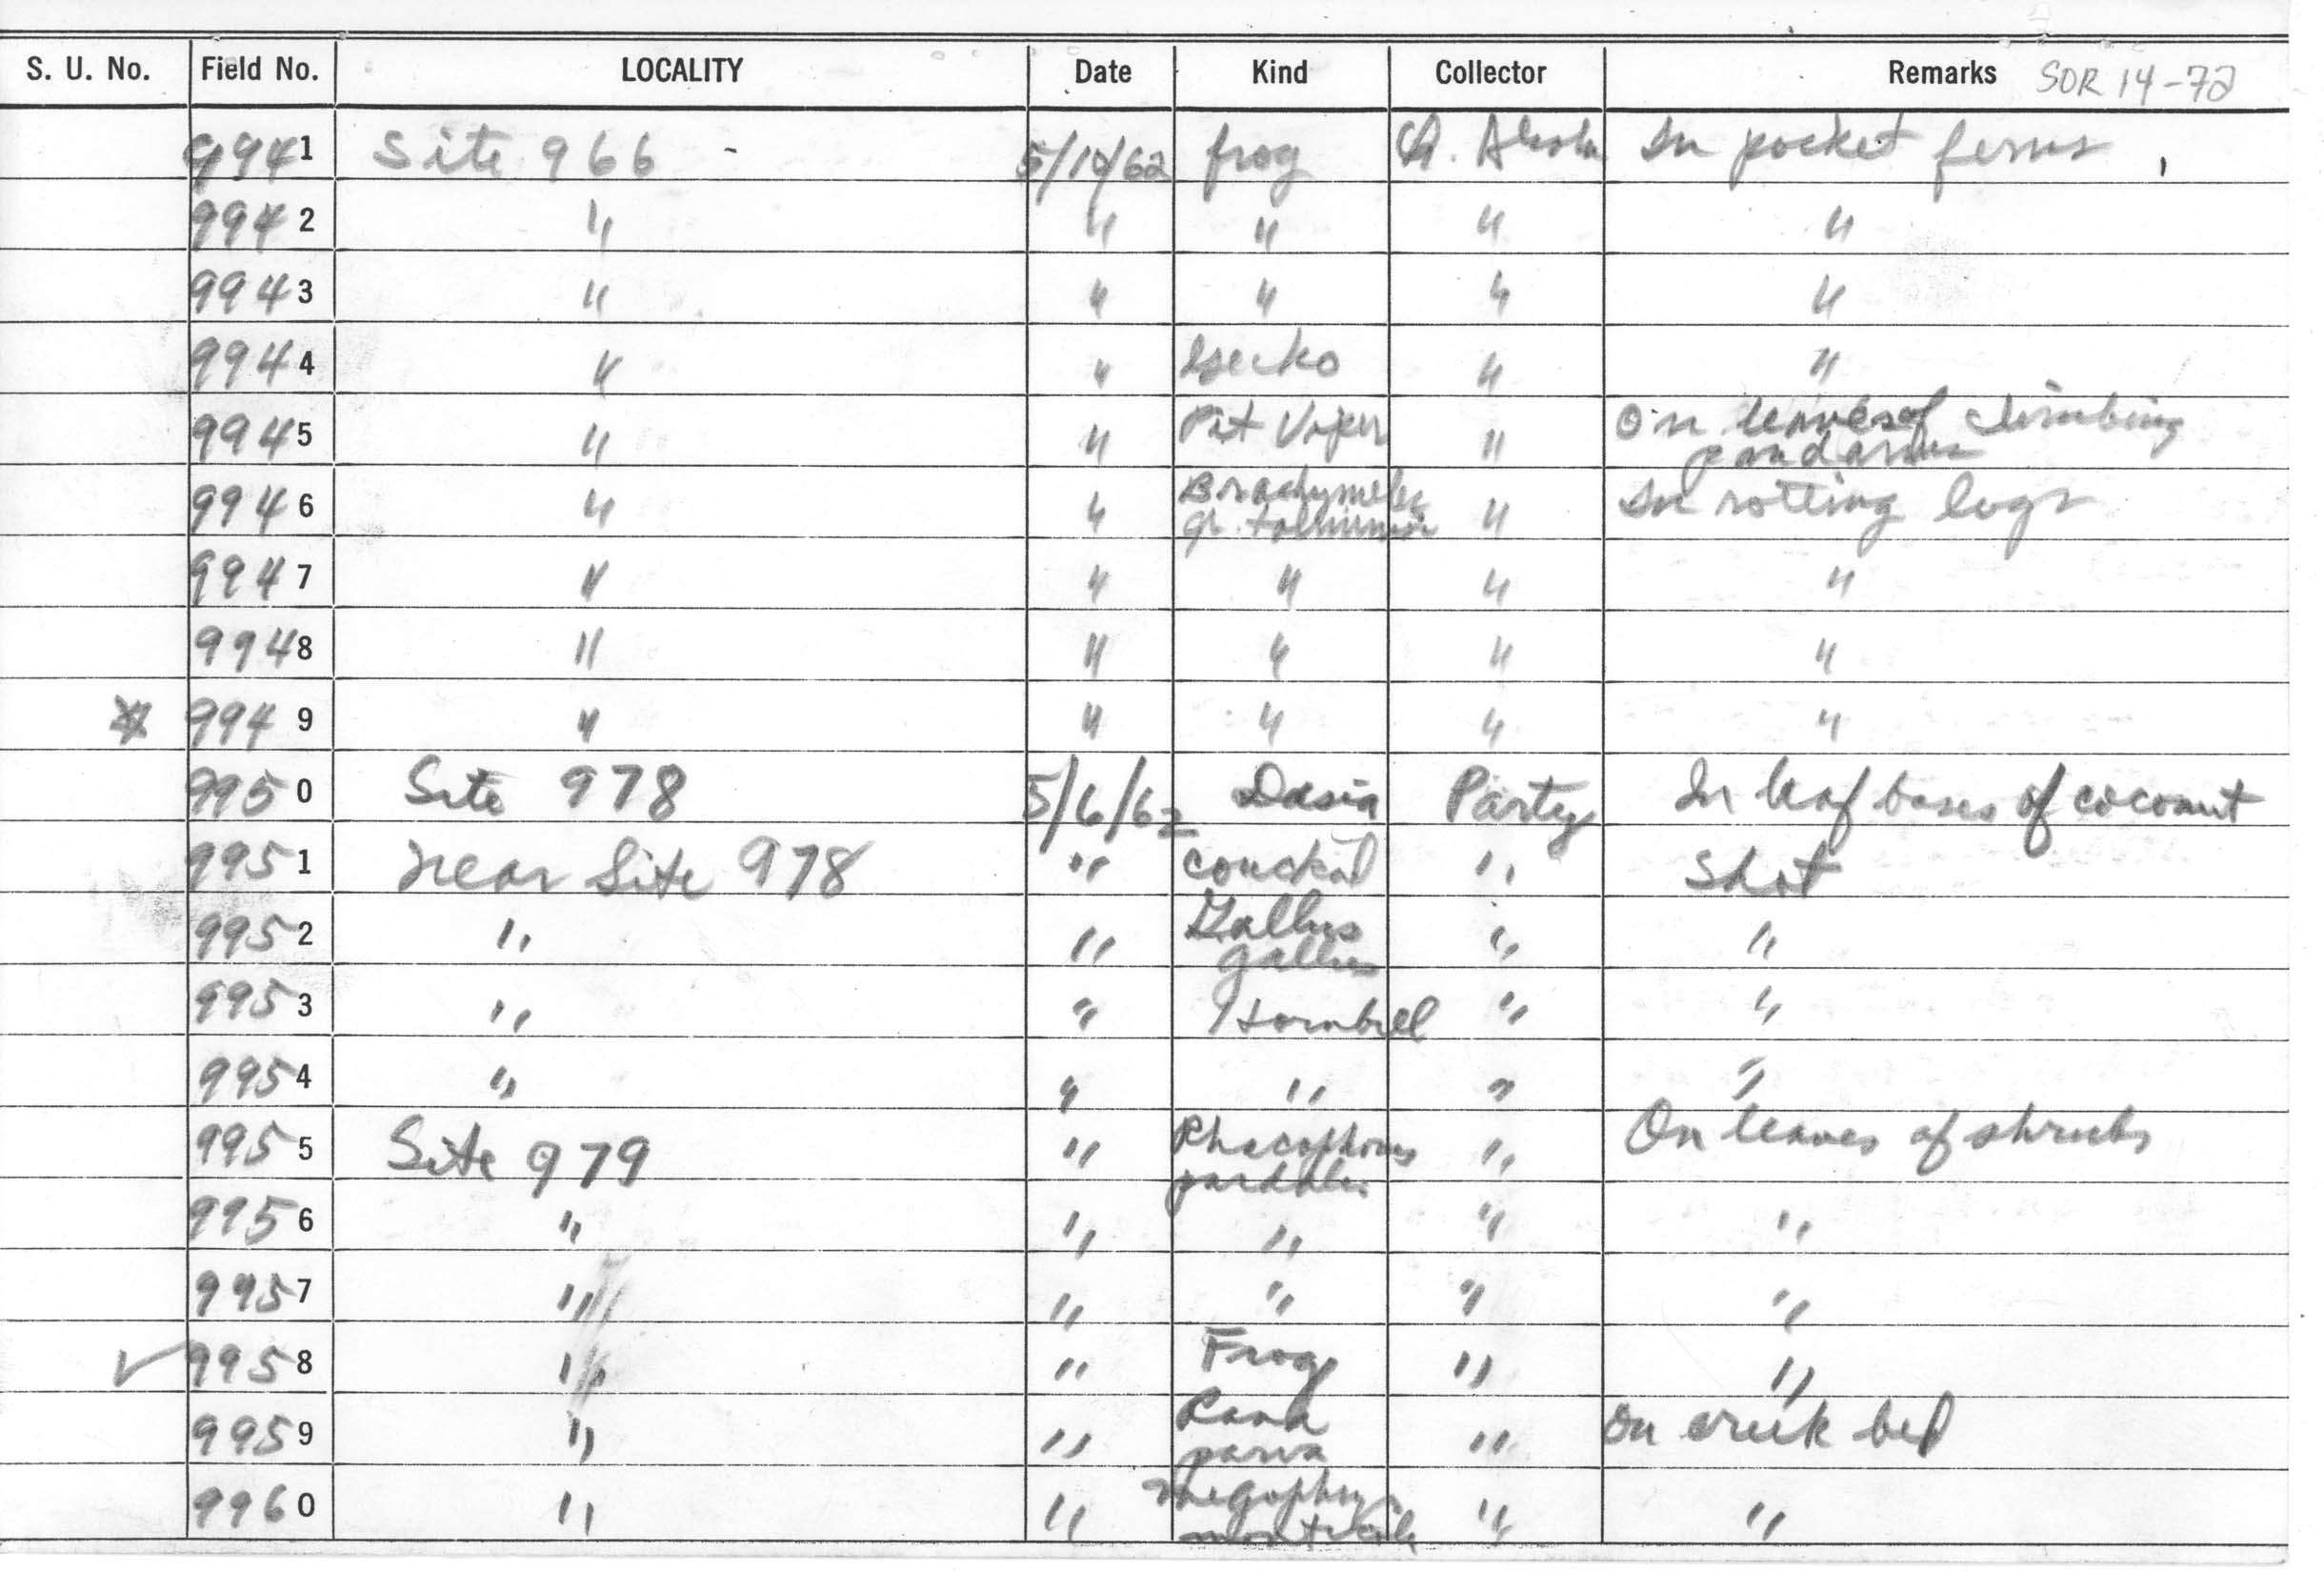 S. U. No. Field No. LOCALITY Date Kind Collector Remarks SOR 14-72
9941 Site 966 - 5/10/62 frog A. Alcala In pocket ferns
9942 " " " " "
9943 " " " " "
9944 " " Gecko " "
9945 " " Pit Viper " On leaves of climbing
pandanus
9946 " " Brachymeles " In rotting logs
gr.
9947 " " " " "
9948 " " " " "
9949 " " " " "
9950 Site 978 5/6/62 Dasia Party In leaf bases of coconut
9951 near Site 978 " couckal " Shot
9952 " " Gallus " "
gallus
9953 " " Hornbill " "
9954 " " " " "
9955 Site 979 " Rhacophorus " On leaves of shrubs
pardalis
9956 " " " " "
9957 " " " " "
✓ 9958 " " Frog " "
9959 " " Rana " On creek bed
parva
9960 " " Megophrys " "
monticola